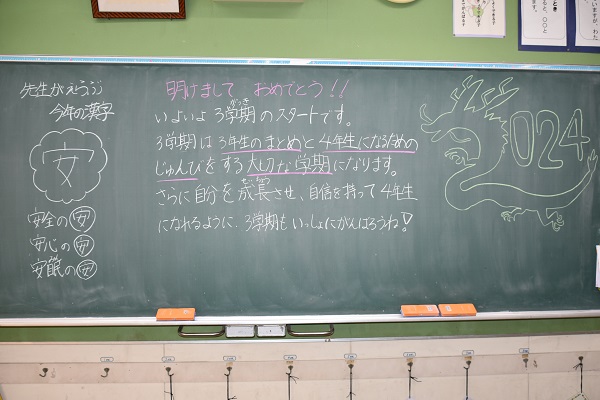 先生がえらぶ
今年の漢字
安
安全の安
安心の安
安眠の安
明けまして おめでとう!!
いよいよ3学期のスタートです。
3学期は3年生のまとめと4年生になるための
じゅんびをする大切な学期になります。
さらに自分を成長させ、自信を持って4年生
になれるように、3学期もいっしょにがんばろうね!
2024